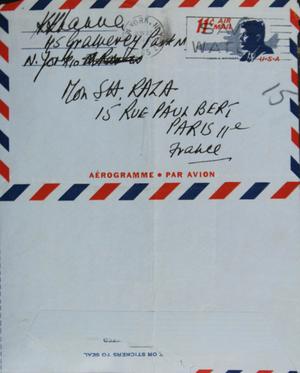 KKhanna
45 Gramercy Park N
N. York 10
YORK, N.
11c AIR MAIL
U·S·A
15
Mon S.H. RAZA
15 RUE PAUL BERT
PARIS 11e
France
AÉROGRAMME • PAR AVION
OR STICKERS TO SEAL